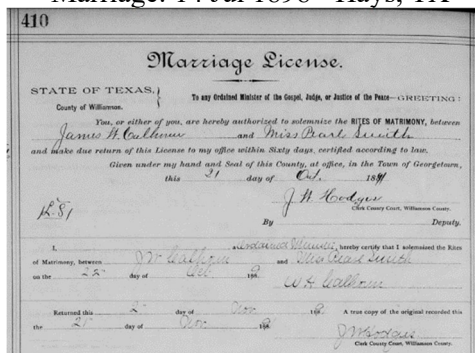 Marriage: 14 Jul 1898 - Hays, TX
410
Marriage License.
STATE OF TEXAS, }
County of Williamson.
To any Ordained Minister of the Gospel, Judge, or Justice of the Peace—GREETING:
You, or either of you, are hereby authorized to solemnize the RITES OF MATRIMONY, between
James W. Calhoun and Miss Pearl Smith
and make due return of this License to my office within Sixty days, certified according to law.
Given under my hand and Seal of this County, at office, in the Town of Georgetown,
this 21 day of Oct. 189
J. W. Hodges
Clerk County Court, Williamson County.
{L.S.}
By Deputy.
I, a Ordained Minister, hereby certify that I solemnized the Rites
of Matrimony, between J W Calhoun and Miss Pearl Smith
on the 22 day of Oct 189
W H Calhoun
Returned this 2 day of Nov 189 A true copy of the original recorded this
the 2 day of Nov 189
J W Hodges
Clerk County Court, Williamson County.